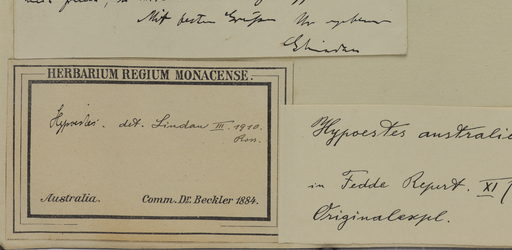 Mit besten Grüßen Ihr ergebener
HERBARIUM REGIUM MONACENSE.
Hypoestes. det. Lindau III. 1910.
Ross.
Australia. Comm. Dr. Beckler 1884.
Hypoestes australi
in Fedde Repert. XI
Originalexpl.